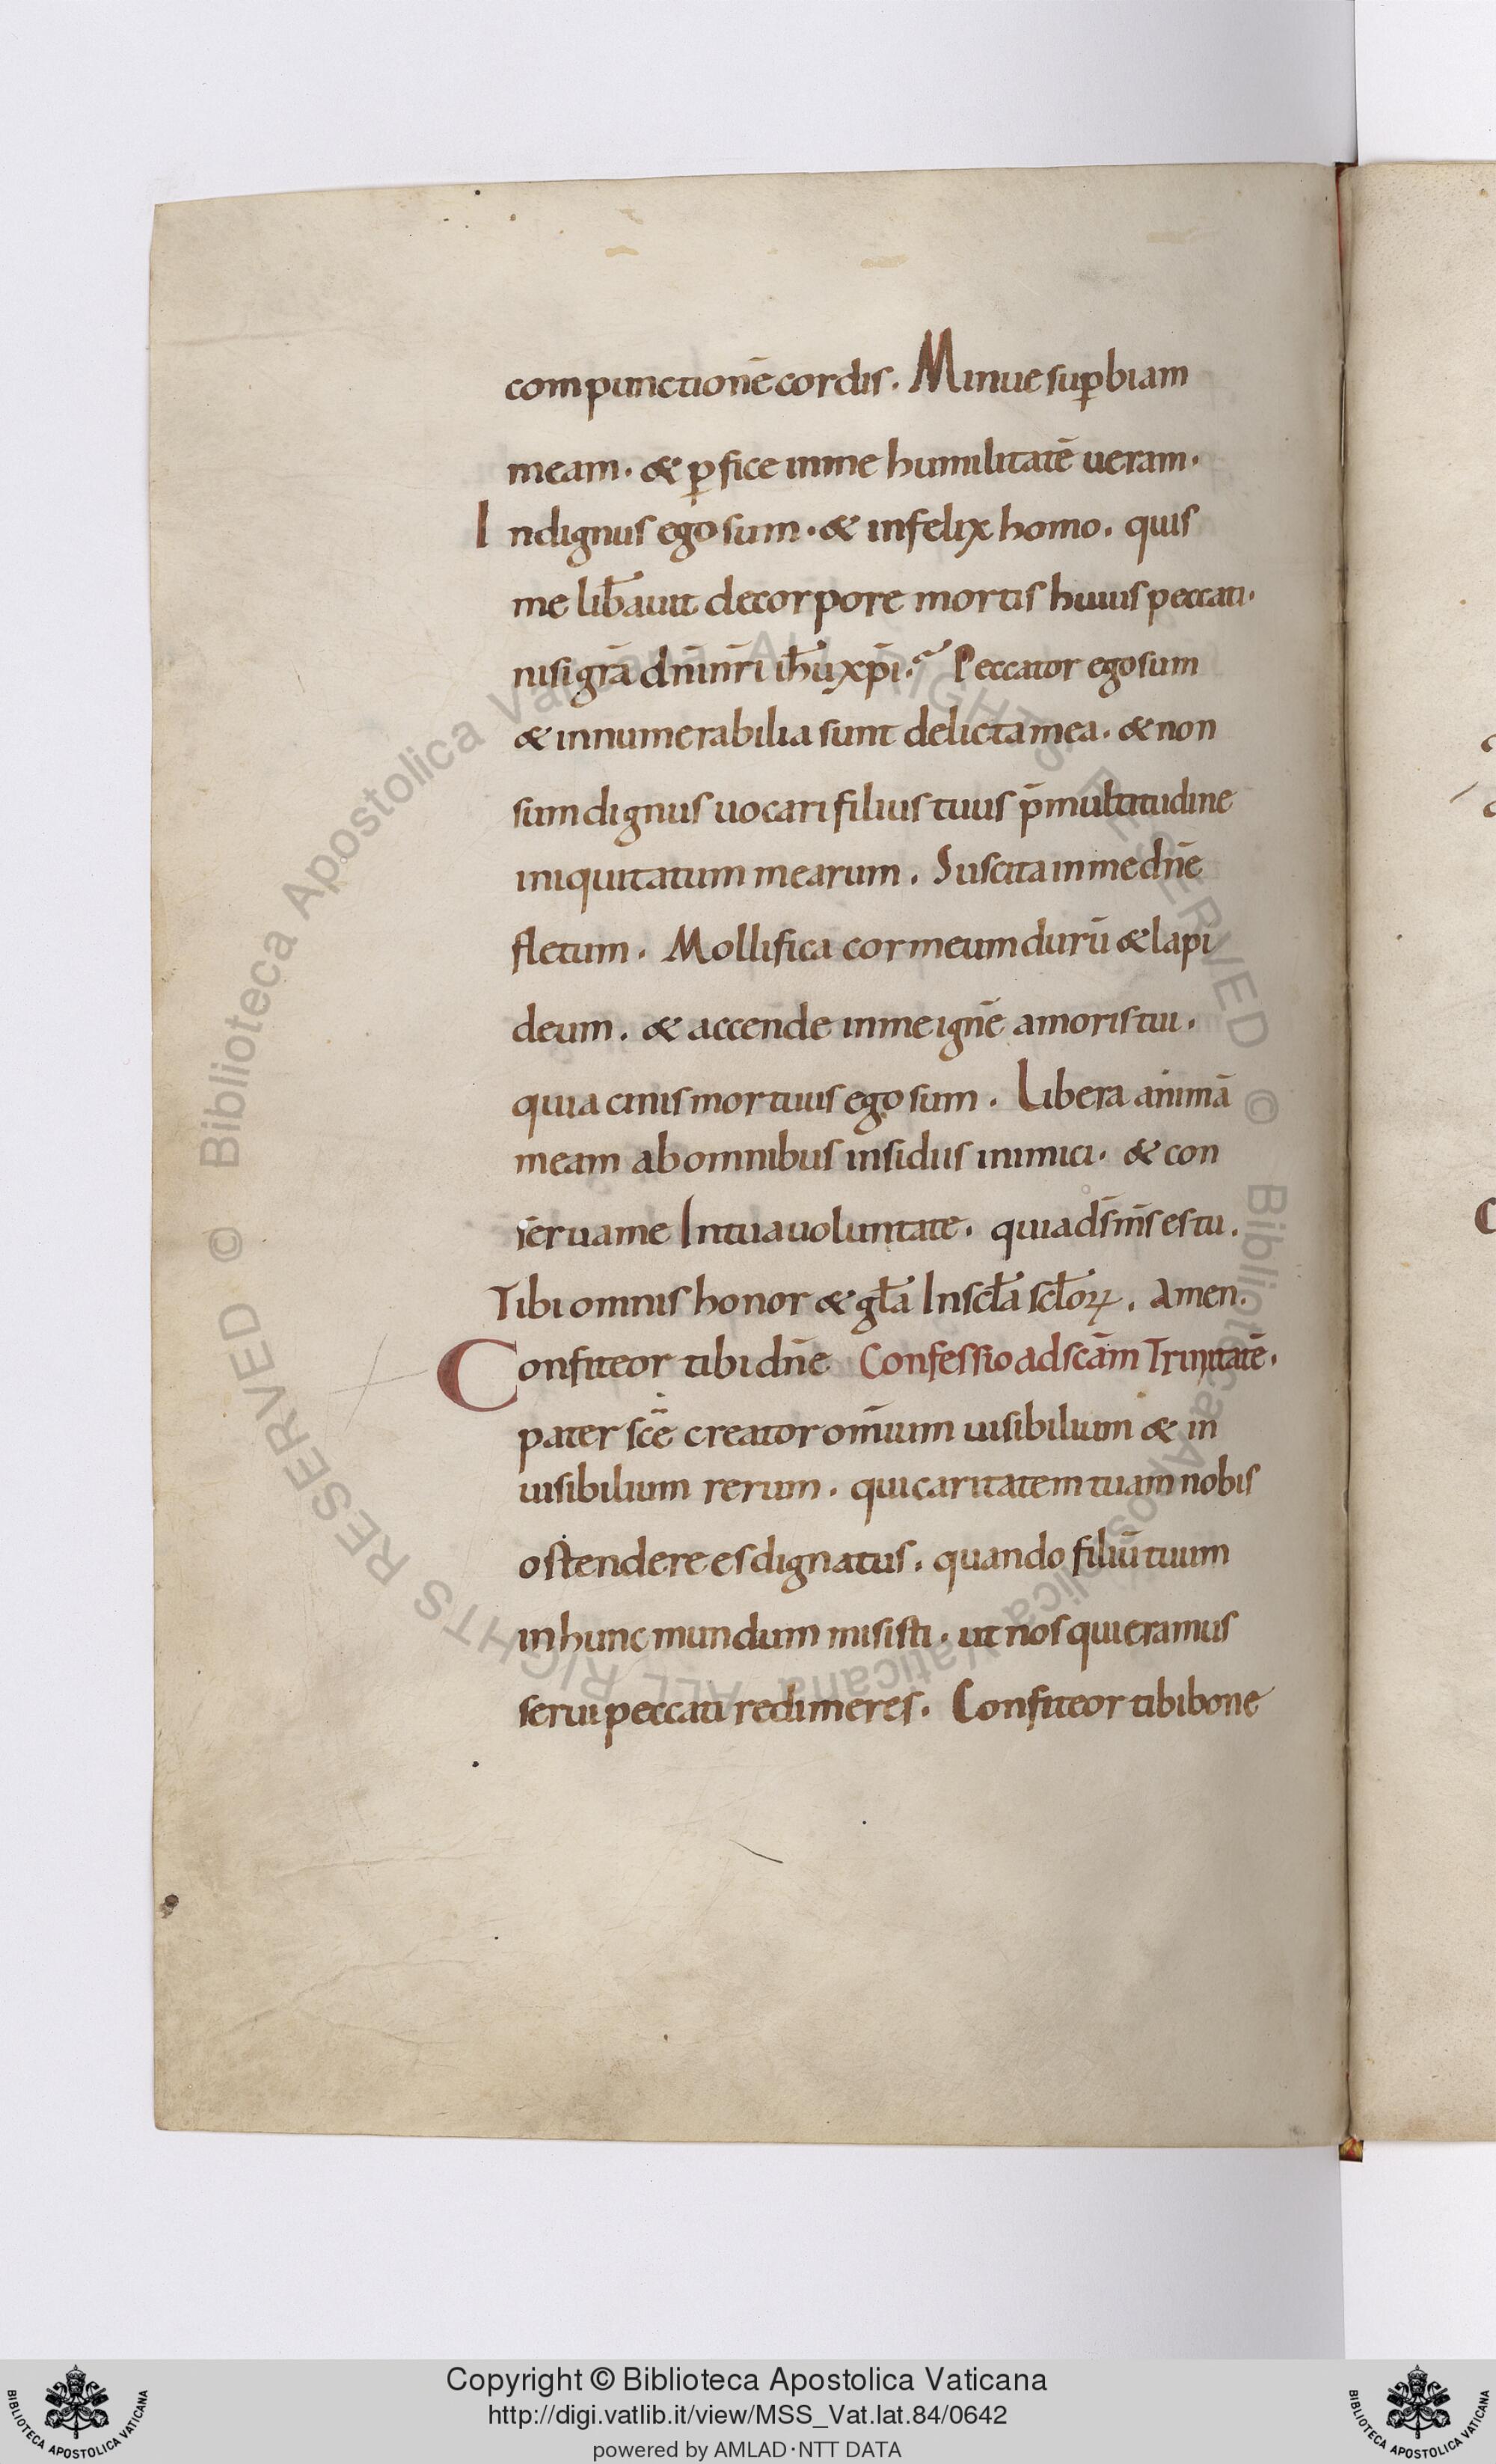 compunctionē cordis. Minue suꝑbiam
meam. & ꝑfice in me humilitatē ueram.
Indignus ego sum. & infelix homo. quis
me lib̄auit de corpore mortis huius peccati.
nisi gr̄a dn̄i nr̄i ih̄u xp̄i. Peccator ego sum
& innumerabilia sunt delicta mea. & non
sum dignus uocari filius tuus p̄ multitudine
iniquitatum mearum. Suscita in me dn̄e
fletum. Mollifica cor meum durū & lapi
deum. & accende in me ignē amoris tui.
quia cinis mortuus ego sum. Libera animā
meam ab omnibus insidiis inimici. & con
serua me In tua uoluntate. quia ds̄ ms̄ es tu.
Tibi omnis honor & gl̄a In scl̄a scl̄oꝝ. Amen.
Confiteor tibi dn̄e Confessio ad scām Trinitatē.
pater scē creator om̄ium uisibilium & in
uisibilium rerum. qui caritatem tuam nobis
ostendere es dignatus. quando filiū tuum
in hunc mundum misisti. ut nos qui eramus
serui peccati redimeres. Confiteor tibi bone
© Biblioteca Apostolica Vaticana ALL RIGHTS RESERVED © Biblioteca Apostolica Vaticana ALL RIGHTS RESERVED
Copyright © Biblioteca Apostolica Vaticana
http://digi.vatlib.it/view/MSS_Vat.lat.84/0642
powered by AMLAD·NTT DATA
BIBLIOTECA APOSTOLICA VATICANA
BIBLIOTECA APOSTOLICA VATICANA